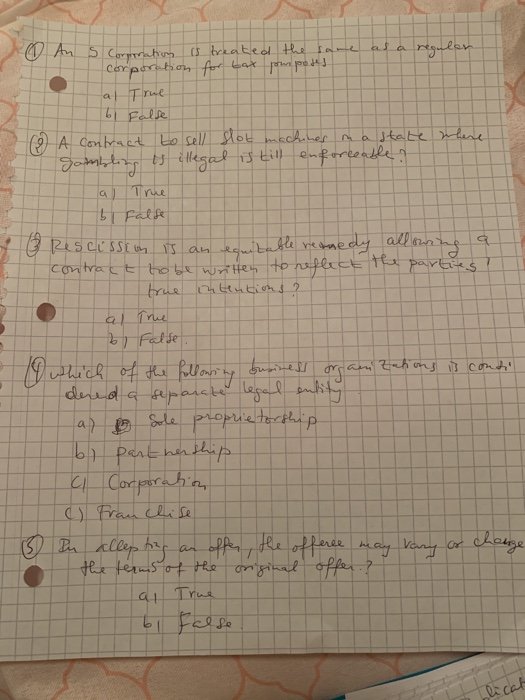 ① An S Corporation is treated the same as a regular
corporation for tax purposes
a) True
b) False
② A contract to sell slot machines in a state where
gambling is illegal is till enforceable?
a) True
b) False
③ Rescission is an equitable remedy allowing a
contract to be written to reflect the parties'
true intentions?
a) True
b) False.
④ which of the following business organizations is consi-
dered a separate legal entity
a) Sole proprietorship
b) Partnership
c) Corporation
c) Franchise
⑤ In accepting an offer, the offeree may vary or change
the terms of the original offer.?
a) True
b) False.